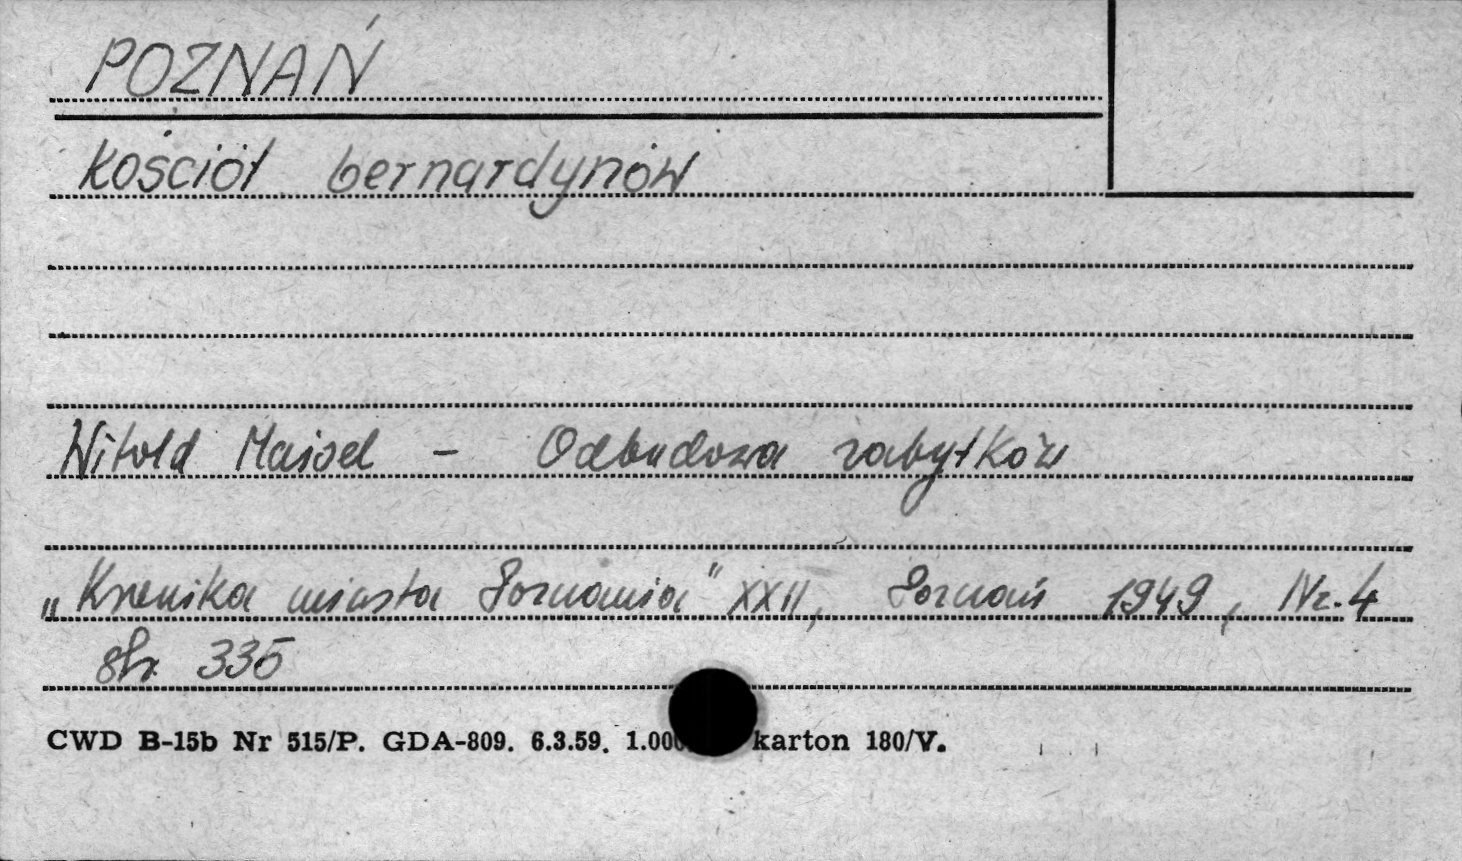 POZNAŃ
Kościół bernardynów
Witold Maisel - Odbudowa zabytków
„Kronika miasta Poznania" XXII, Poznań 1949, Nr. 4
str. 335
CWD B-15b Nr 515/P. GDA-809. 6.3.59. karton 180/V.